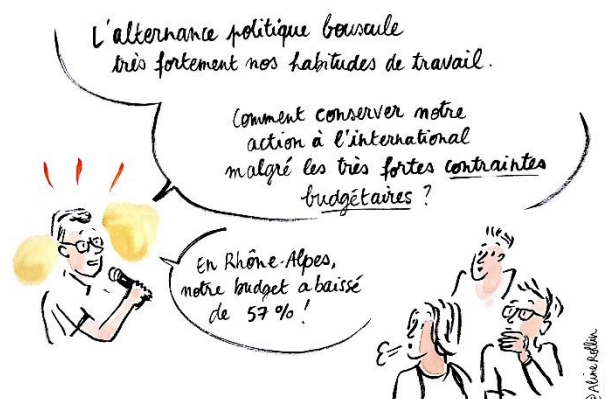 L'alternance politique bouscule
très fortement nos habitudes de travail.
Comment conserver notre
action à l'international
malgré les très fortes contraintes
budgétaires ?
En Rhône-Alpes,
notre budget a baissé
de 57 % !
@Aline Rollin